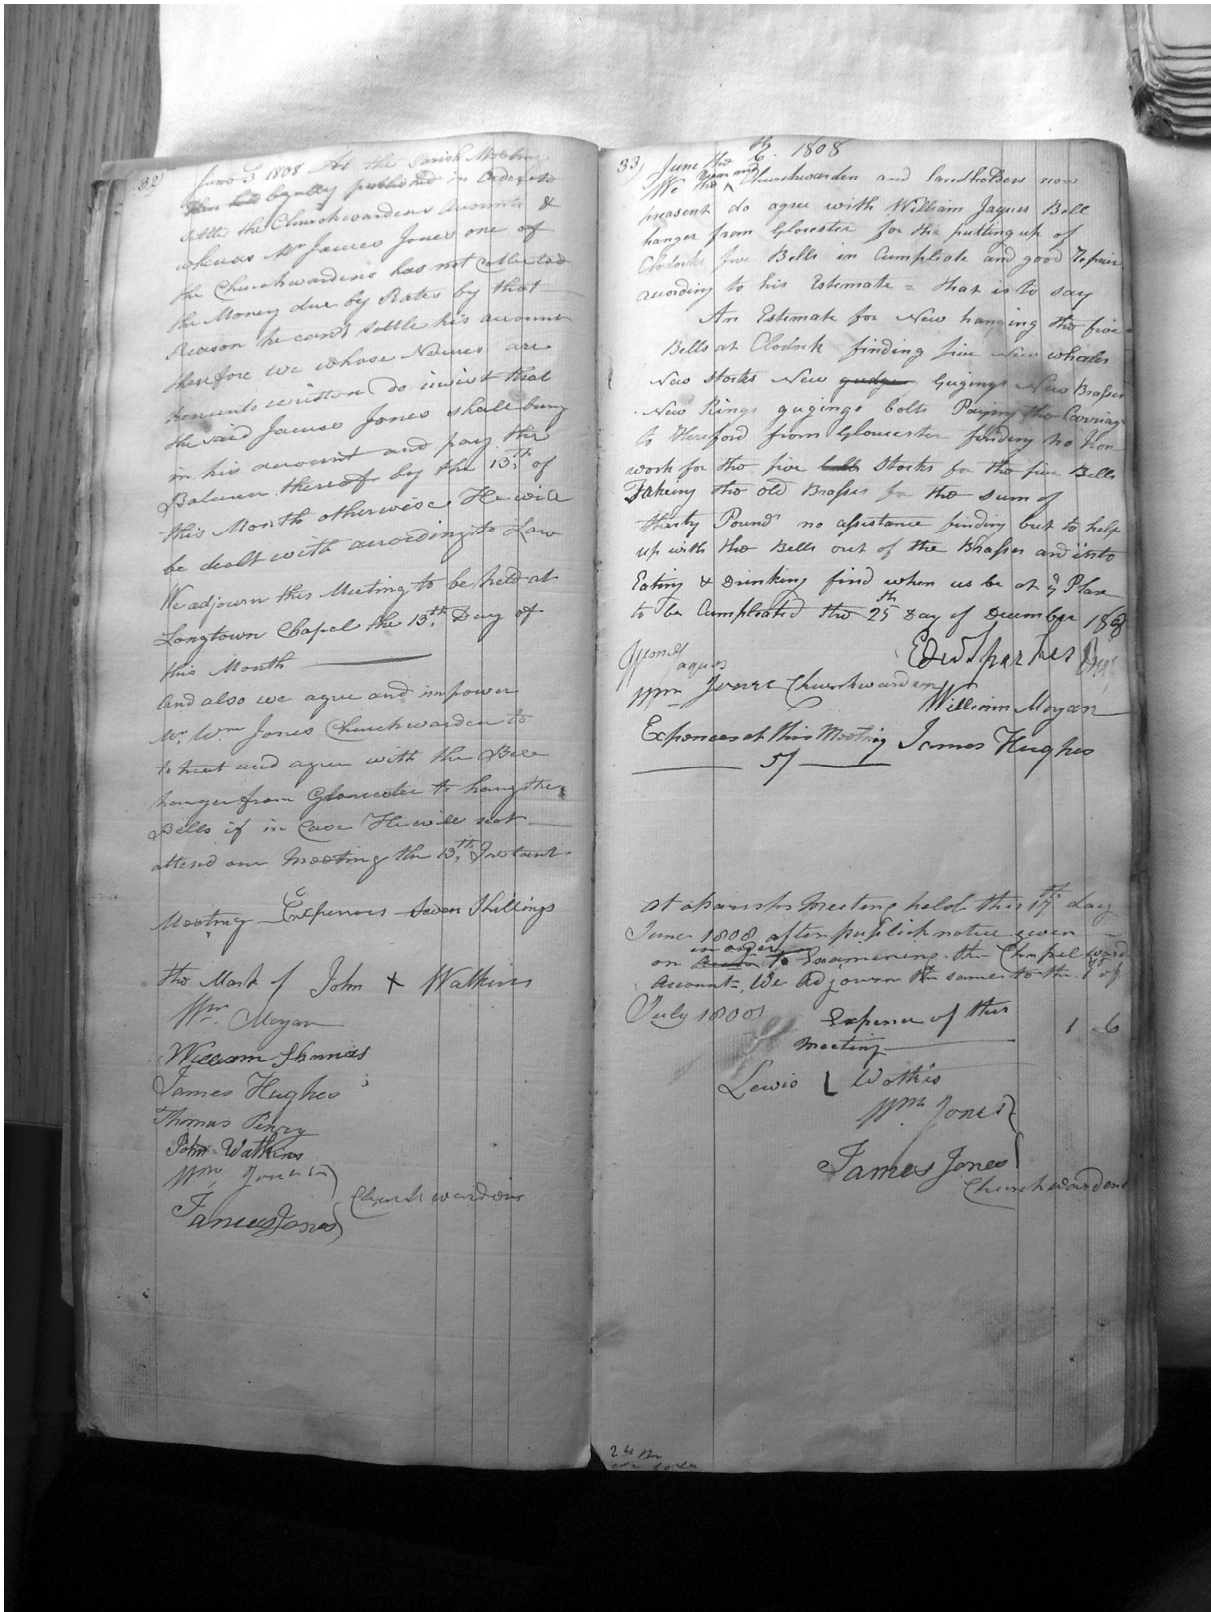 32)
June 3 1808 At the Parish Meeting
then held legally published in Order to
settle the Churchwardens Accounts &
whereas Mr James Jones one of
the Churchwardens has not Collected
the Money due by Rates by that
Reason he cant settle his account
therefore we whose Names are
hereunto written do insist that
the said James Jones shall bring
in his account and pay the
Balance thereof by the 13th of
this Month otherwise He will
be dealt with according to Law
We adjourn this Meeting to be held at
Longtown Chapel the 13th Day of
this Month
And also we agree and impower
Mr Wm Jones Churchwarden to
to treat and agree with the Bell
hanger from Gloucester to hang the
Bells if in Case He will not
attend our Meeting the 13th Instant
Meeting Expences Seven Shillings
the Mark of John X Watkins
Wm Morgan
William
James Hughes
Thomas Perry
John Watkins
Wm Jones
Churchwardens
James Jones
33)
June the 6th 1808
We the Churchwarden and landholders now
preasent do agree with William Jaques Bell
hanger from Glocester for the putting up of
Clodock five Bells in Cumpleate and good Repair
acording to his Estemate = that is to say
An Estemate for New hanging the five
Bells at Clodock finding five New wheales
New Stocks New gudgen Gugings New Brasses
New Rings gugings bolts Paying the Carriag
to Hereford from Gloucester finding no Iron
work for the five bells Stocks for the five Bells
Takeing the old Brasses for the Sum of
therty Pound no assistance finding but to help
up with the Bells out of the Brasses and into
Eating & Drinking find when us be at ye Place
to be Cumpleated the 25th Day of December 1808
Wm Jaques
Wm Jones Churchwarden
William Morgan
Expences at this Meeting James Hughes
5/
At a parish Meeting held this 17th day
June 1808 after publick notice given
on in order to Examening the Chapel Ward
Account, We Adjourn the same to the 1st of
July 1808
Expence of this
meeting 1 6
Lewis L Watkis
Wm Jones
James Jones
Churchwardens